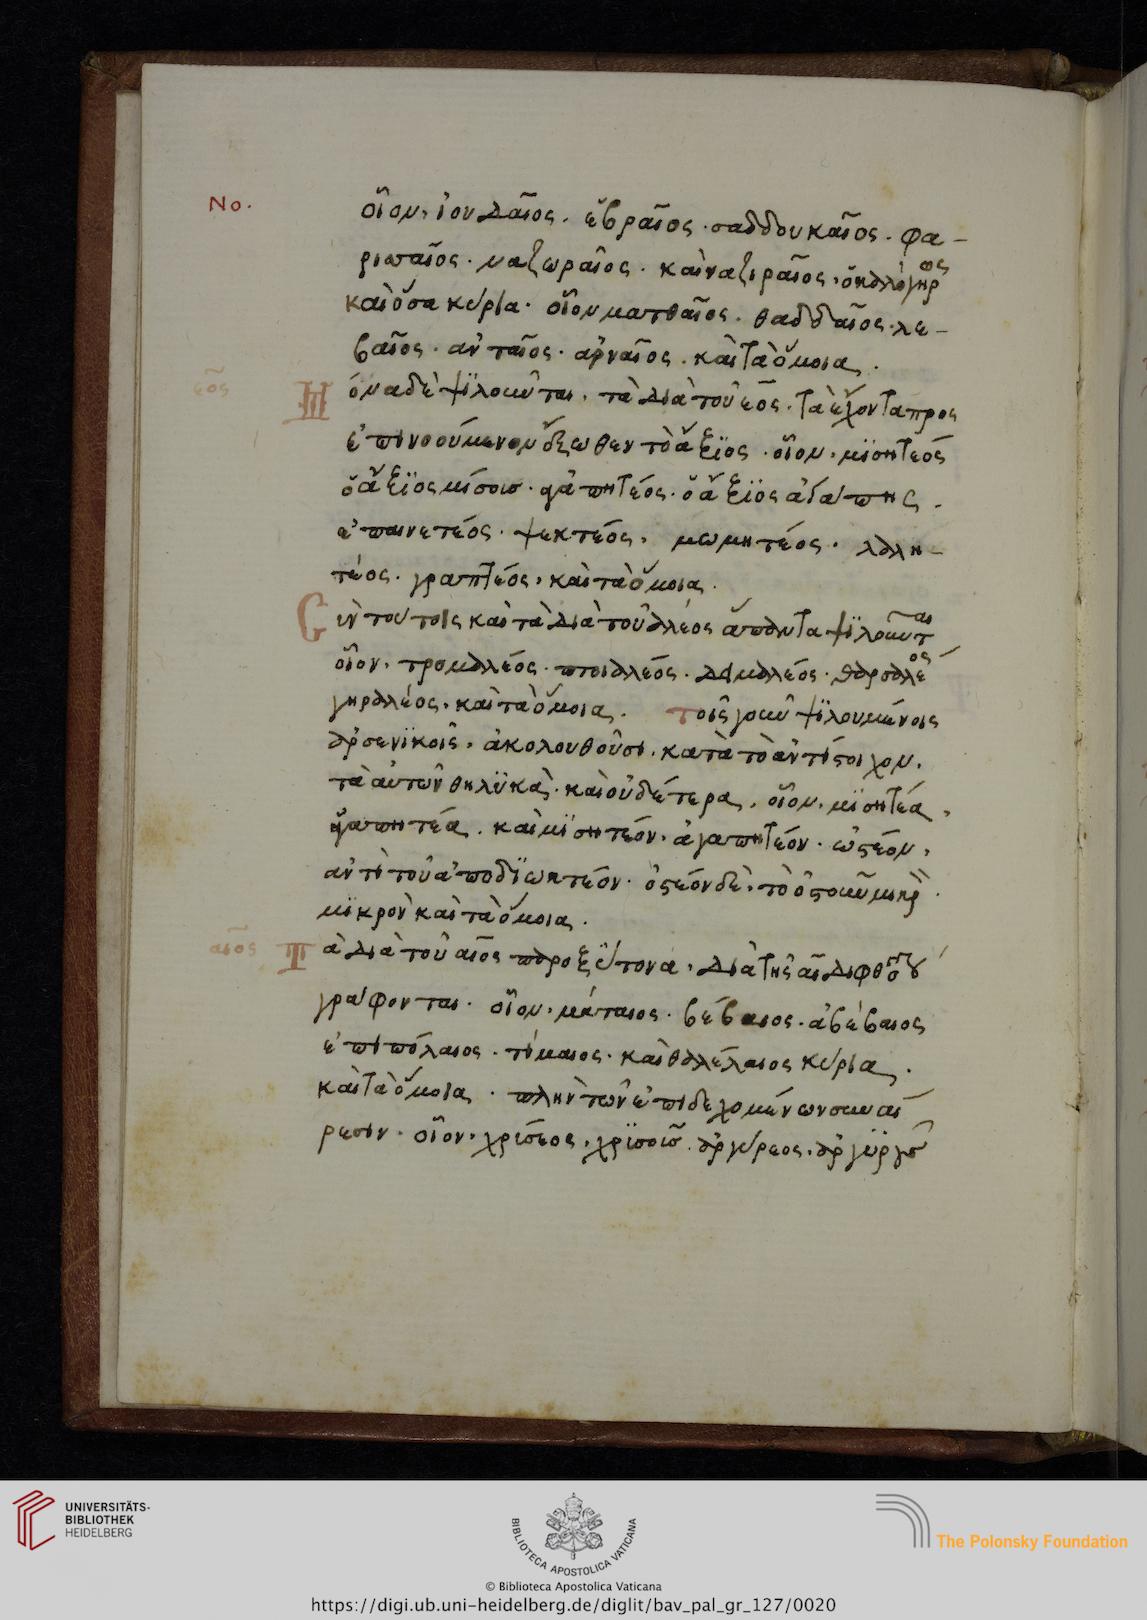 Νο.
οἷον, ἰουδαῖος. ἑβραῖος. σαδδουκαῖος. φα-
ρισαῖος. ναζωραῖος. καὶ ναζιραῖος,
καὶ ὅσα κύρια. οἷον ματθαῖος. θαδδαῖος. λε-
βαῖος. ἀνταῖος. ἀρναῖος. καὶ τὰ ὅμοια.
εος
ὄνομα δὲ ψϊλοῦνται, τὰ διὰ τοῦ εος. τὰ ἔχοντα προς
ἐπινοούμενον ἔξωθεν τὸ ἄξϊος. οἷον, μϊσητεός
ὁ ἄξϊος μίσους. ἀγαπητέος. ὁ ἄξϊος ἀγάπης.
ἐπαινετέος. ψεκτέος. μωμητέος. λαλη-
τέος. γραπτέος, καὶ τὰ ὅμοια.
σὺν τούτοις καὶ τὰ διὰ τοῦ αλέος ἅπαντα ψϊλοῦνται
οἷον, τρομαλέος. πτοιαλέος. δειμαλέος. θαρσαλέος
γηραλέος, καὶ τὰ ὅμοια. τοῖς γοῦν ψϊλουμένοις
ἀρσενϊκοῖς, ἀκολουθοῦσι. κατὰ τὸ ἀντίστοιχον,
τὰ αὐτῶν θηλϋκὰ. καὶ οὐδέτερα, οἷον, μϊσητέα,
ἀγαπητέα. καὶ μϊσητέον, ἀγαπητέον. ὠστέον,
ἀντὶ τοῦ ἀποδϊωκτέον. ὀστέον δὲ, τὸ ὀστοῦν
μϊκρὸν καὶ τὰ ὅμοια.
αιος
Τὰ διὰ τοῦ αιος προπαροξύτονα, διὰ τῆς αι διφθόγγου
γράφονται. οἷον, μάταιος. βέβαιος. ἀβέβαιος
ἐπιπόλαιος. τίμαιος. καὶ θαλέλαιος κύρια.
καὶ τὰ ὅμοια. πλὴν τῶν ἐπιδεχομένων συναί
ρεσιν. οἷον, χρύσεος, χρϋσοῦς. ἀργύρεος, ἀργϋροῦς
UNIVERSITÄTS-
BIBLIOTHEK
HEIDELBERG
BIBLIOTECA APOSTOLICA VATICANA
The Polonsky Foundation
© Biblioteca Apostolica Vaticana
https://digi.ub.uni-heidelberg.de/diglit/bav_pal_gr_127/0020